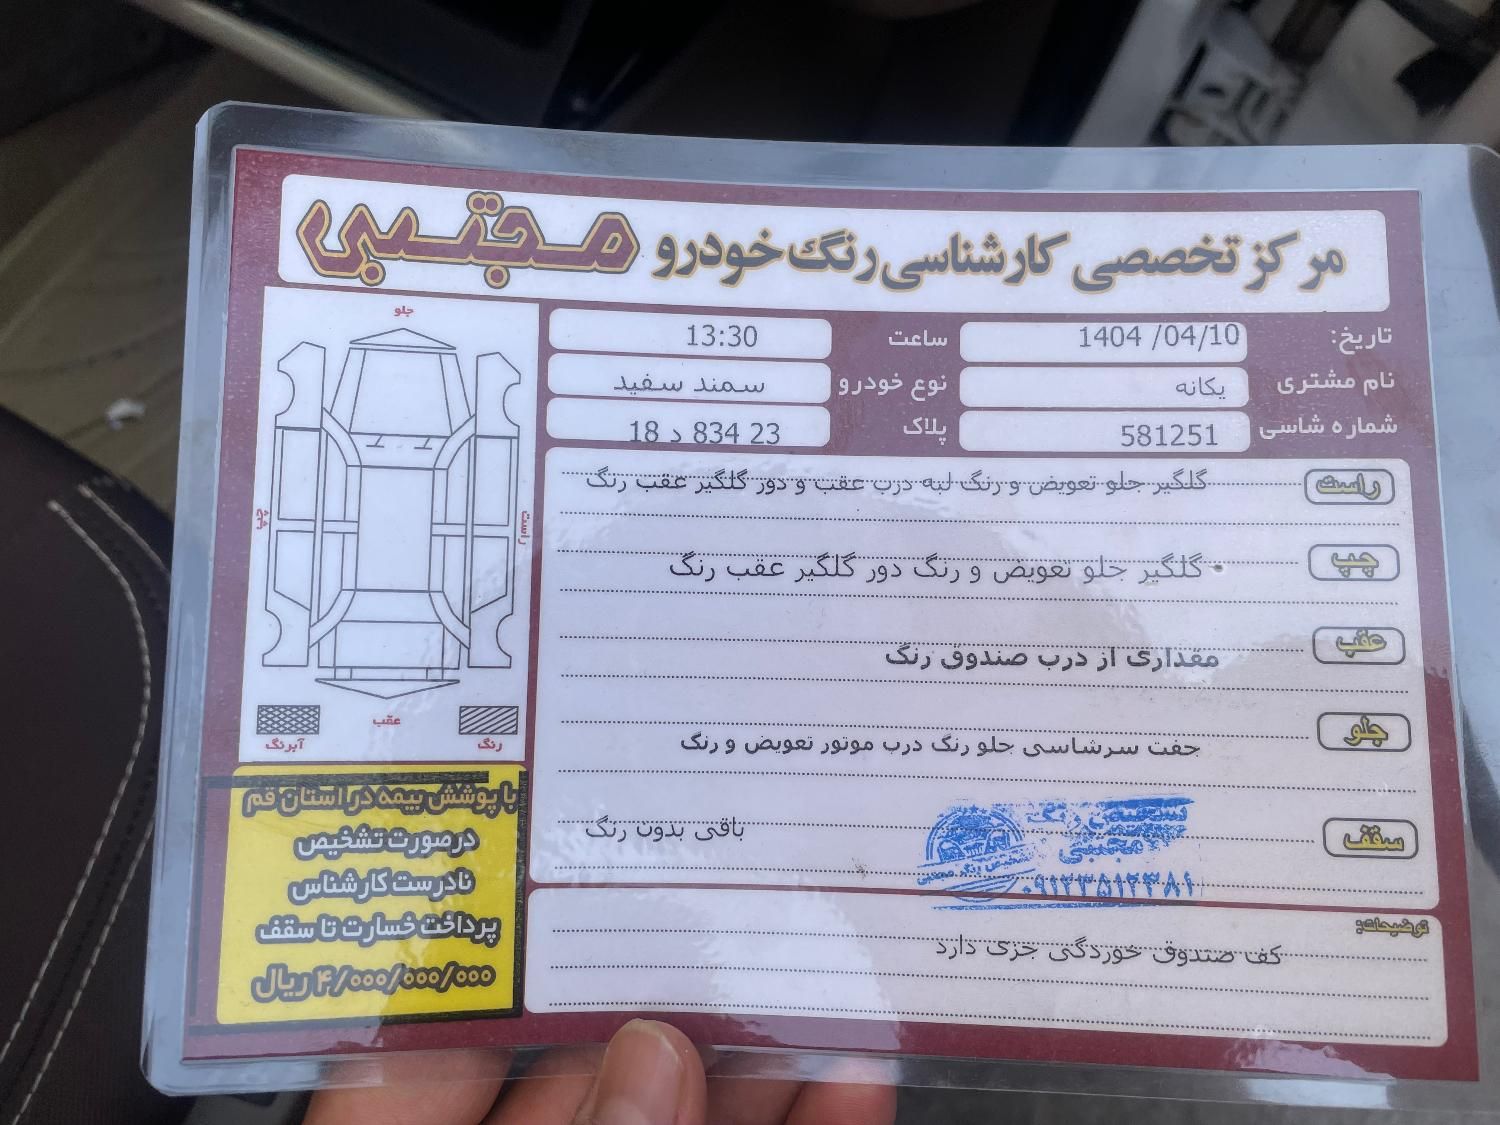 مرکز تخصصی کارشناسی رنگ خودرو مجتبی
تاریخ: 1404 /04/10 ساعت 13:30
نام مشتری یکانه نوع خودرو سمند سفید
شماره شاسی 581251 پلاک 18 د 834 23
راست گلگیر جلو تعویض و رنگ لبه درب عقب و دور گلگیر عقب رنگ
چپ گلگیر جلو تعویض و رنگ دور گلگیر عقب رنگ
عقب مقداری از درب صندوق رنگ
جلو جفت سرشاسی جلو رنگ درب موتور تعویض و رنگ
سقف باقی بدون رنگ
تشخیص رنگ
مجتبی
تشخیص رنگ مجتبی
۰۹۱۲۳۵۱۲۳۸۱
توضیحات:
کف صندوق خوردگی جزی دارد
جلو
چپ
راست
عقب
آبرنگ
رنگ
با پوشش بیمه در استان قم
درصورت تشخیص
نادرست کارشناس
پرداخت خسارت تا سقف
۴/۰۰۰/۰۰۰/۰۰۰ ریال